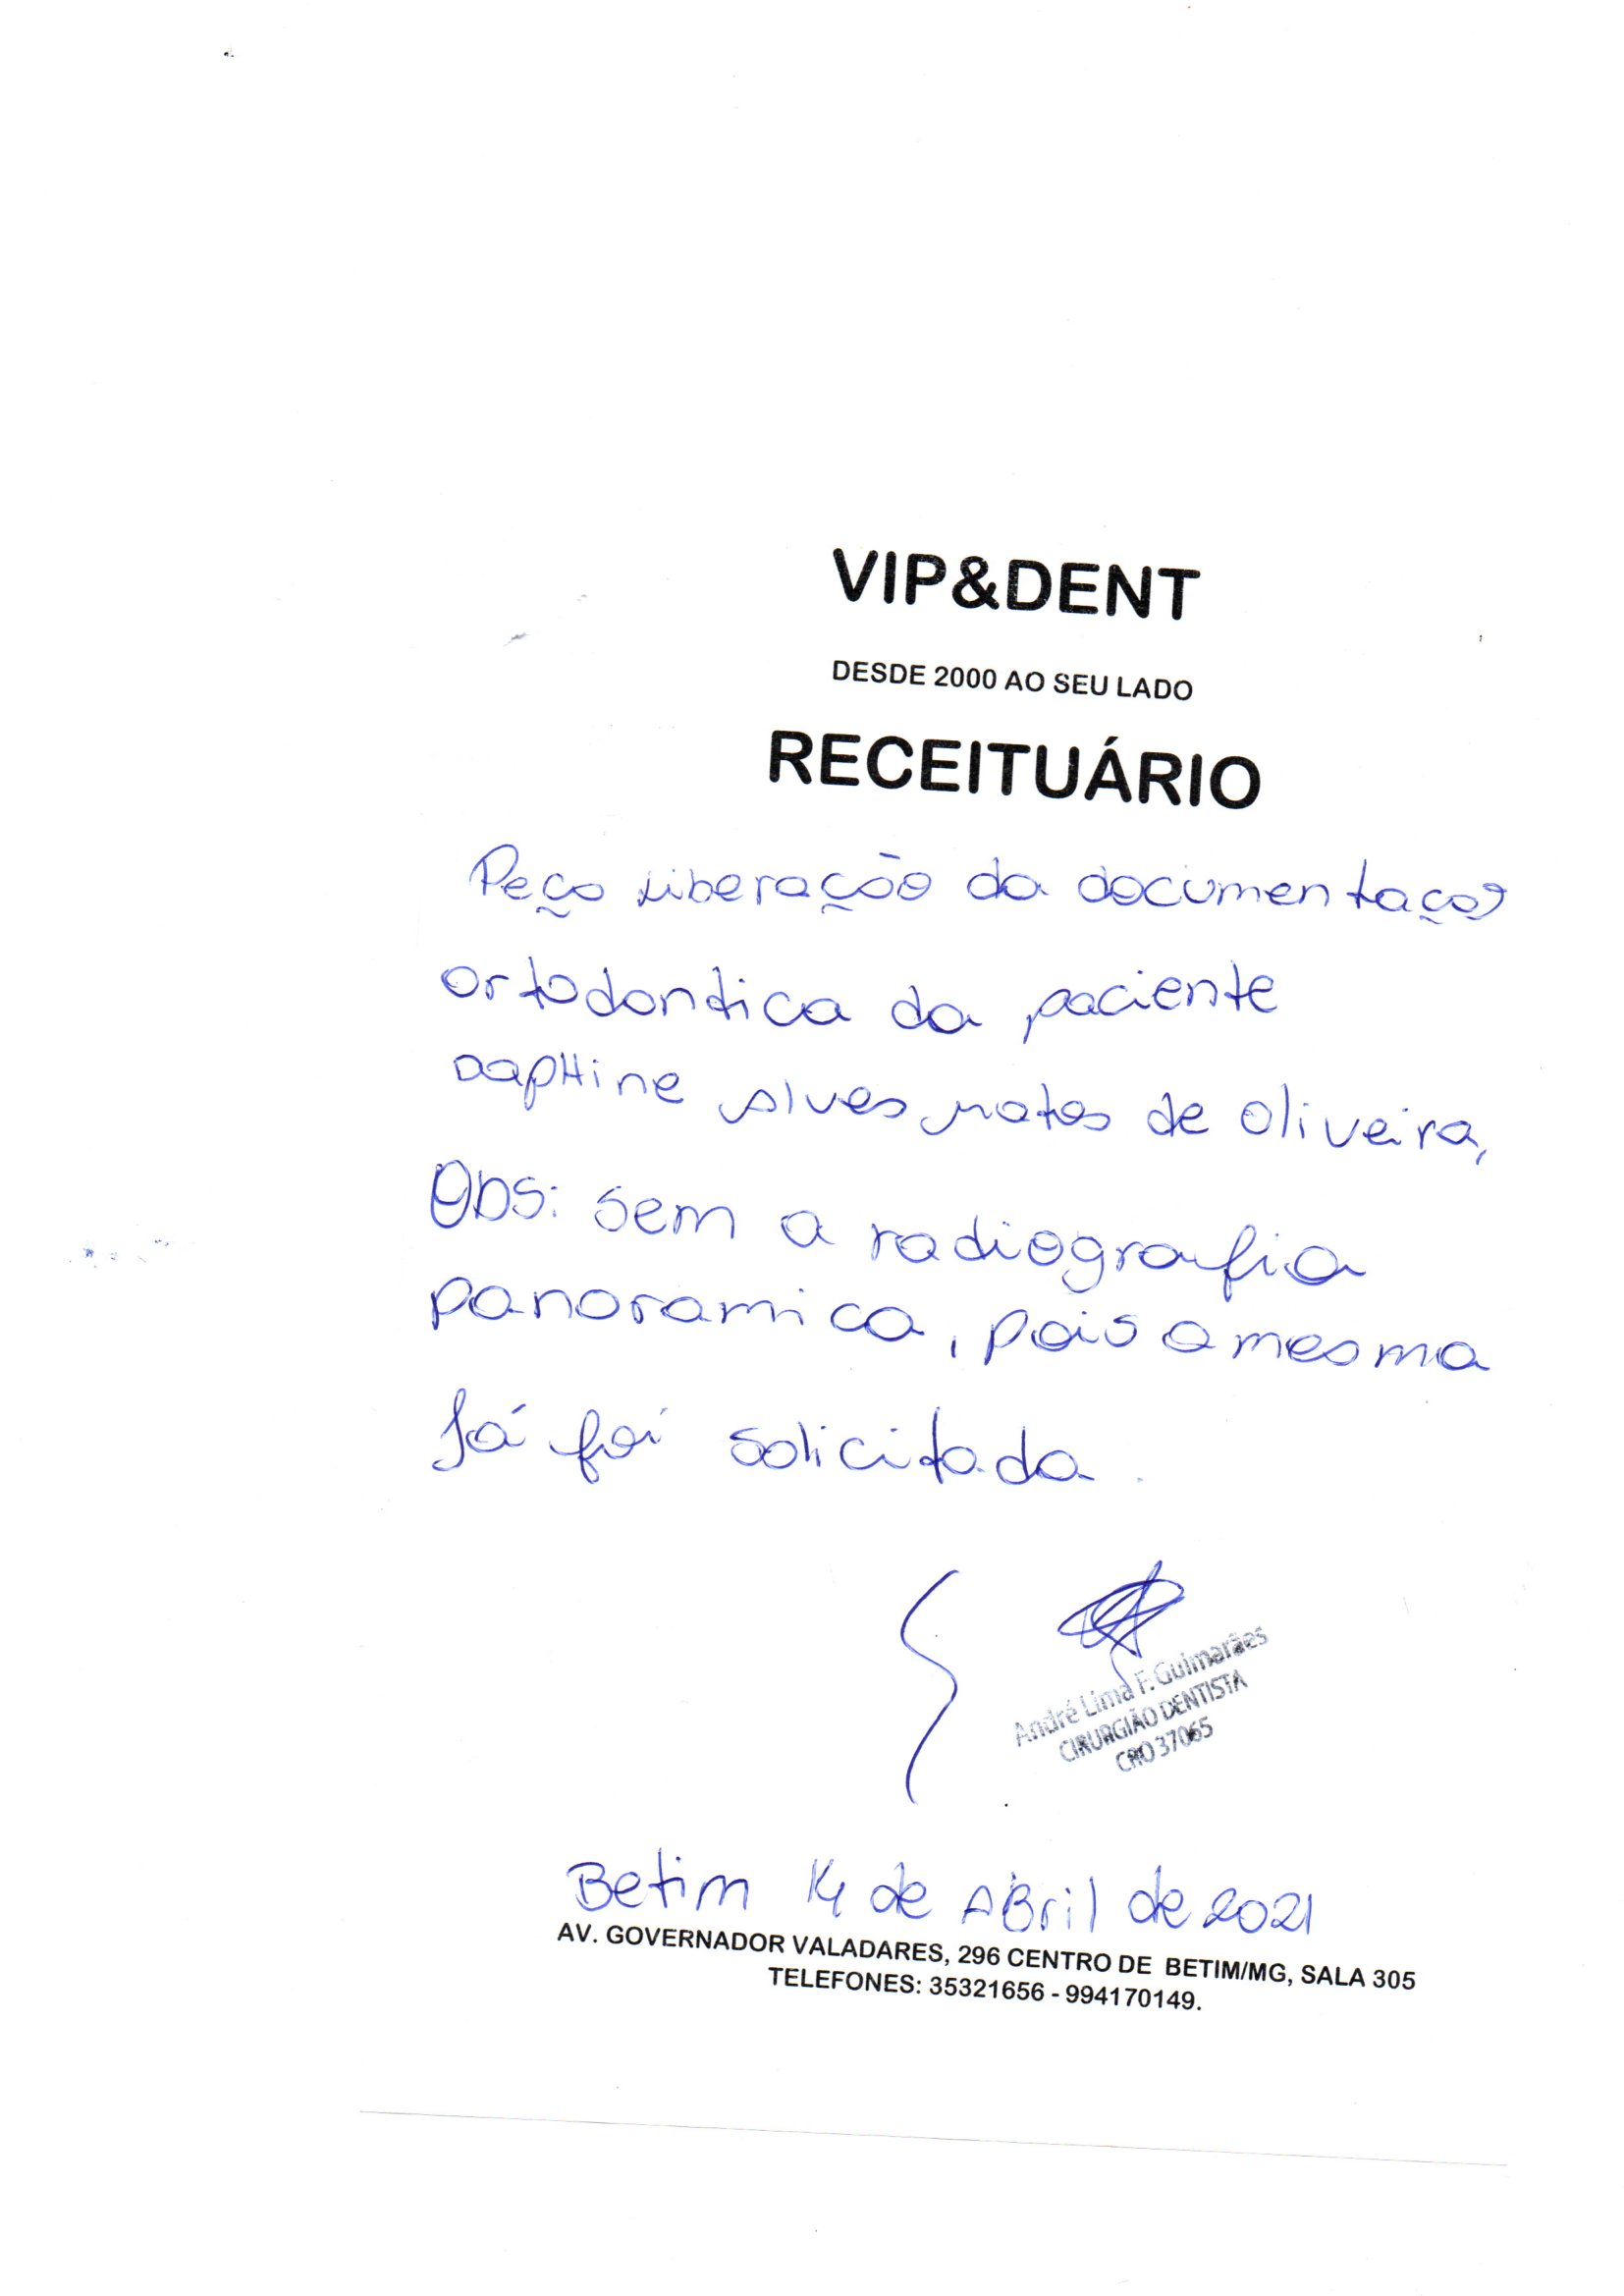 VIP&DENT
DESDE 2000 AO SEU LADO
RECEITUÁRIO
Peço liberação da documentaçao
ortodontica da paciente
DapHine Alves Matos de Oliveira,
Obs: sem a radiografia
panoramica, pois a mesma
Já foi solicitada.
André Lima F. Guimarães
CIRURGIÃO DENTISTA
CRO 37065
Betim 14 de ABril de 2021
AV. GOVERNADOR VALADARES, 296 CENTRO DE BETIM/MG, SALA 305
TELEFONES: 35321656 - 994170149.